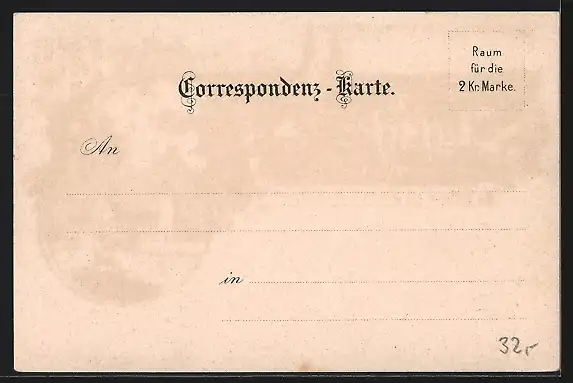 Raum
für die
2 Kr. Marke.
Correspondenz-Karte.
An
in
32,-